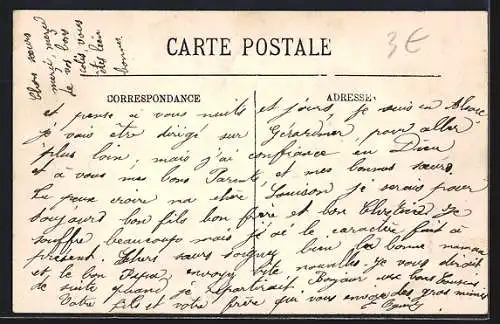 Chers sœurs
merci merci
de vos bon
vous
êtes bien
bonne
3€
CARTE POSTALE
CORRESPONDANCE
ADRESSE
et pense à vous nuits et jours, je suis en Alsace
je vais être dirigé sur Gérardmer pour aller
plus loin, mais j'ai confiance en Dieu
et a vous mes bons Parents et mes bonnes sœurs.
Tu peux croire ma chère Louison je serais pour
toujours bon fils bon frère et bon Chrétien. Je
souffre beaucoup mais j'ai le caractère fait à
présent. Chers sœurs soignez bien la bonne maman
et le bon Papa, envoyez vite nouvelles. Je vous dirait
de suite quand je repartirait. Bonjour aux
Votre fils et votre frère qui vous envoie des gros mimis